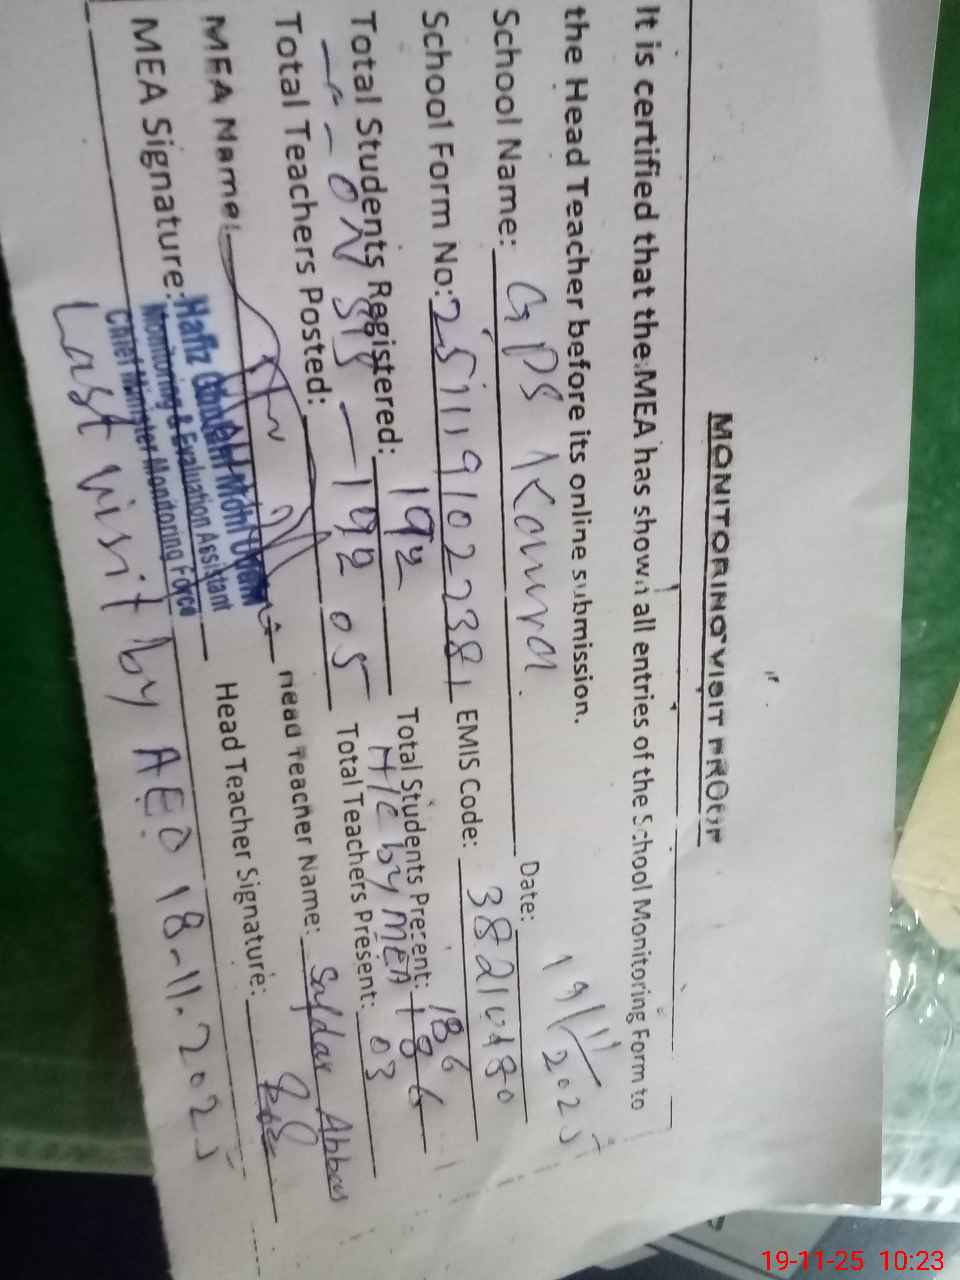 MONITORING VISIT PROOF
It is certified that the MEA has shown all entries of the School Monitoring Form to
the Head Teacher before its online submission.
School Name: GPS Kamra. Date: 19/11/2025
School Form No: 2511191022381 EMIS Code:
Total Students Registered: 192 Total Students Present: 186
192 H/C by MEA 186
Total Teachers Posted: 05 Total Teachers Present: 03
MEA Name: Head Teacher Name: Safdar Abbas
MEA Signature: Head Teacher Signature:
Hafiz Ghulam
Monitoring & Evaluation Assistant
Chief Minister Monitoring Force
Last visit by AEO 18-11-2025
19-11-25 10:23